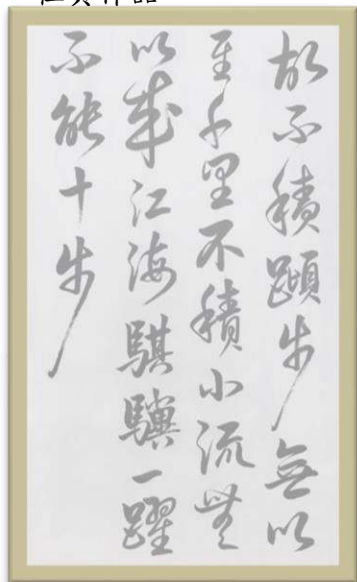 故不積蹞步無以
至千里不積小流無
以成江海騏驥一躍
不能十步